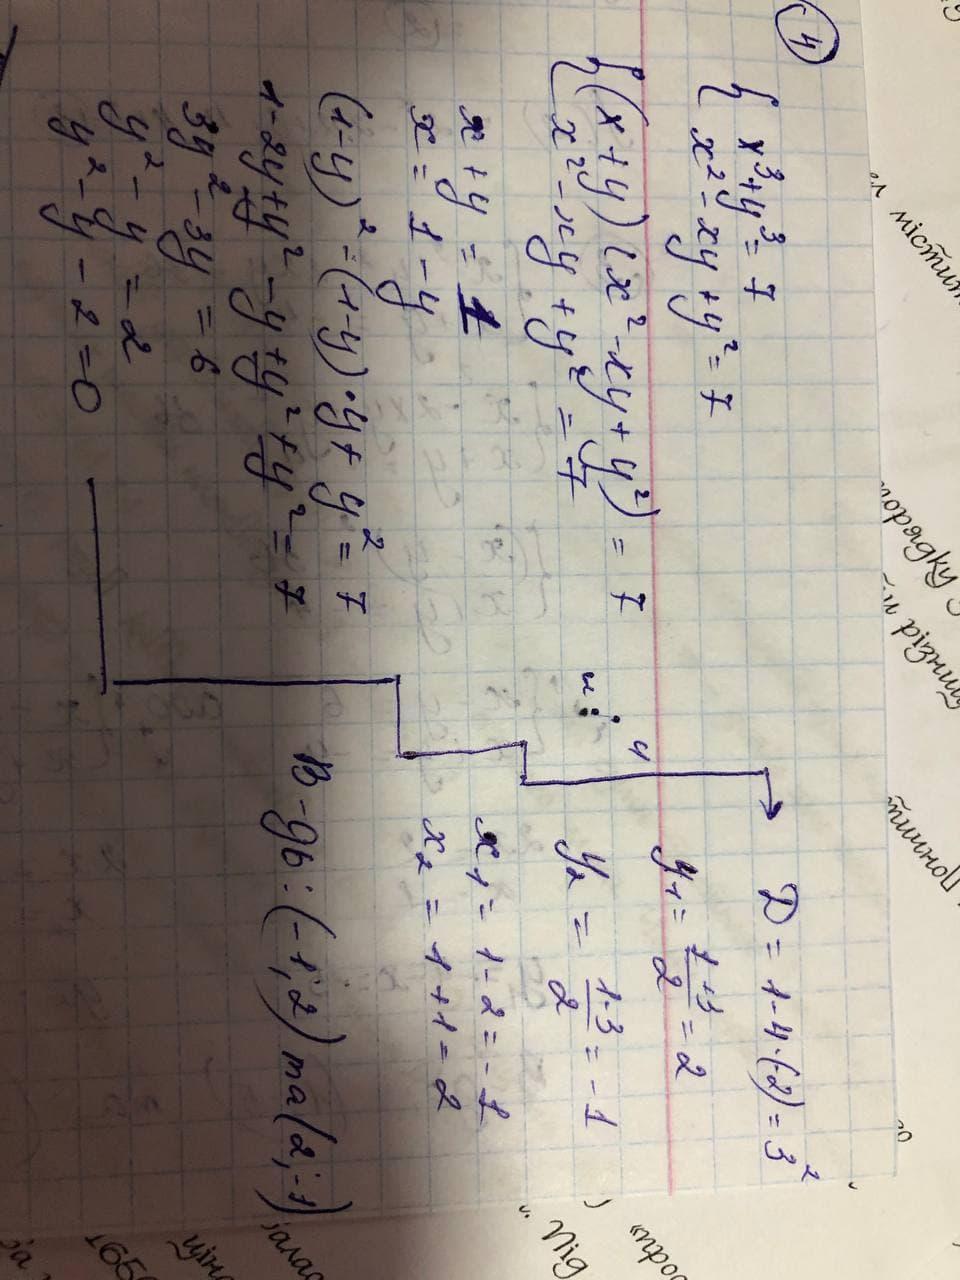 4
x³ + y³ = 7
x² - xy + y² = 7
(x + y) (x² - xy + y²) = 7
x² - xy + y² = 7
x + y = 1
x = 1 - y
(1-y)² = (1-y) · y + y² = 7
1 - 2y + y² - y + y² + y² = 7
3y² - 3y = 6
y² - y = 2
y² - y - 2 = 0
D = 1 - 4 · (-2) = 3²
y₁ = (1+3)/2 = 2
y₂ = (1-3)/2 = -1
x₁ = 1 - 2 = -1
x₂ = 1 + 1 = 2
В-дь: (-1; 2) та (2; -1)
містит
порядку
різниц
Поншт
Під